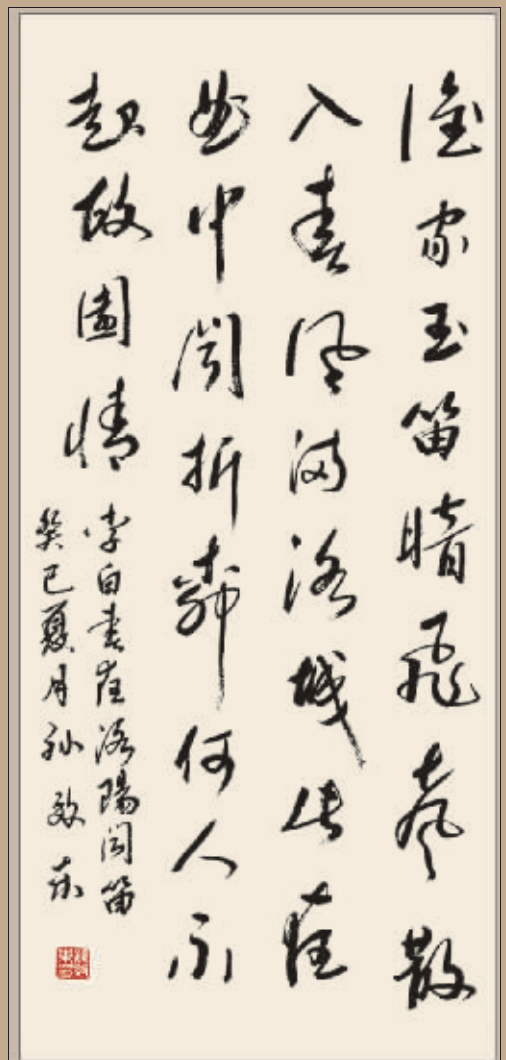 誰家玉笛暗飛聲散
入春風滿洛城此夜
曲中聞折柳何人不
起故園情
李白春夜洛陽聞笛
癸巳夏月孫